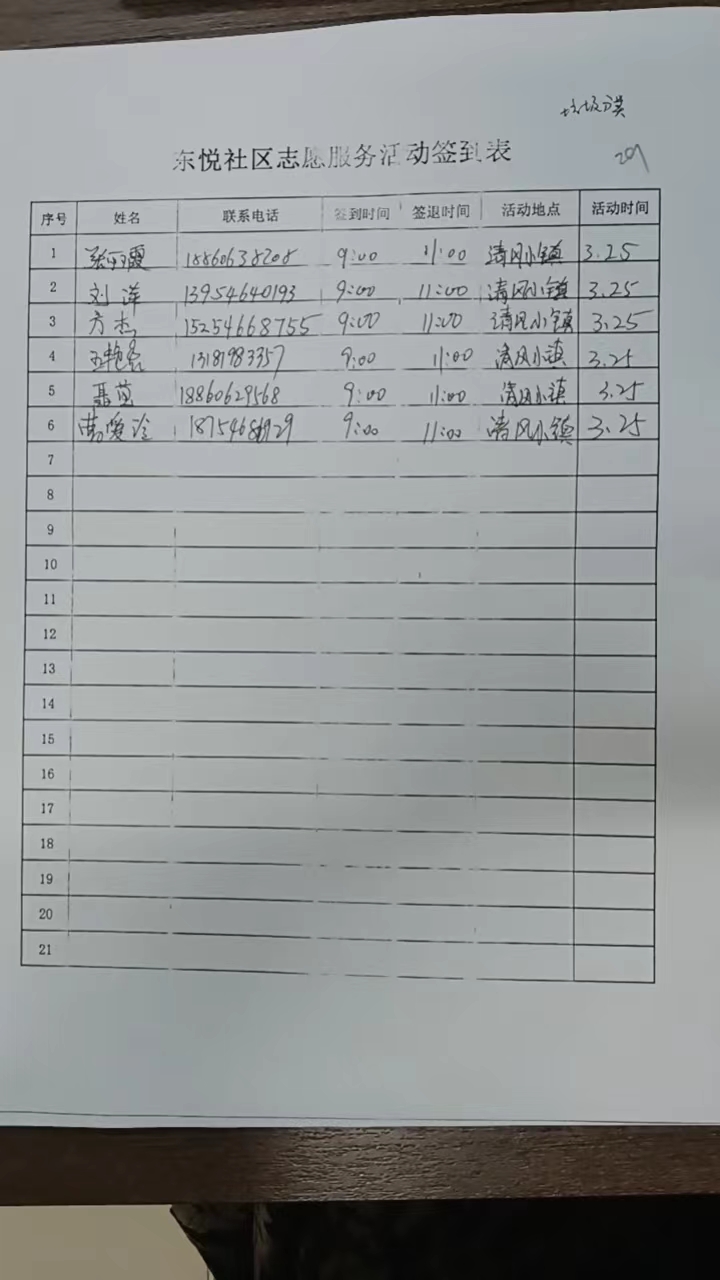 垃圾分类
东悦社区志愿服务活动签到表
207
序号 姓名 联系电话 签到时间 签退时间 活动地点 活动时间
1 18860638208 9:00 11:00 清风小镇 3.25
2 刘洋 13954640193 9:00 11:00 清风小镇 3.25
3 方杰 15254668755 9:00 11:00 清风小镇 3.25
4 13181983357 9:00 11:00 清风小镇 3.25
5 18860629568 9:00 11:00 清风小镇 3.25
6 9:00 11:00 清风小镇 3.25
7
8
9
10
11
12
13
14
15
16
17
18
19
20
21